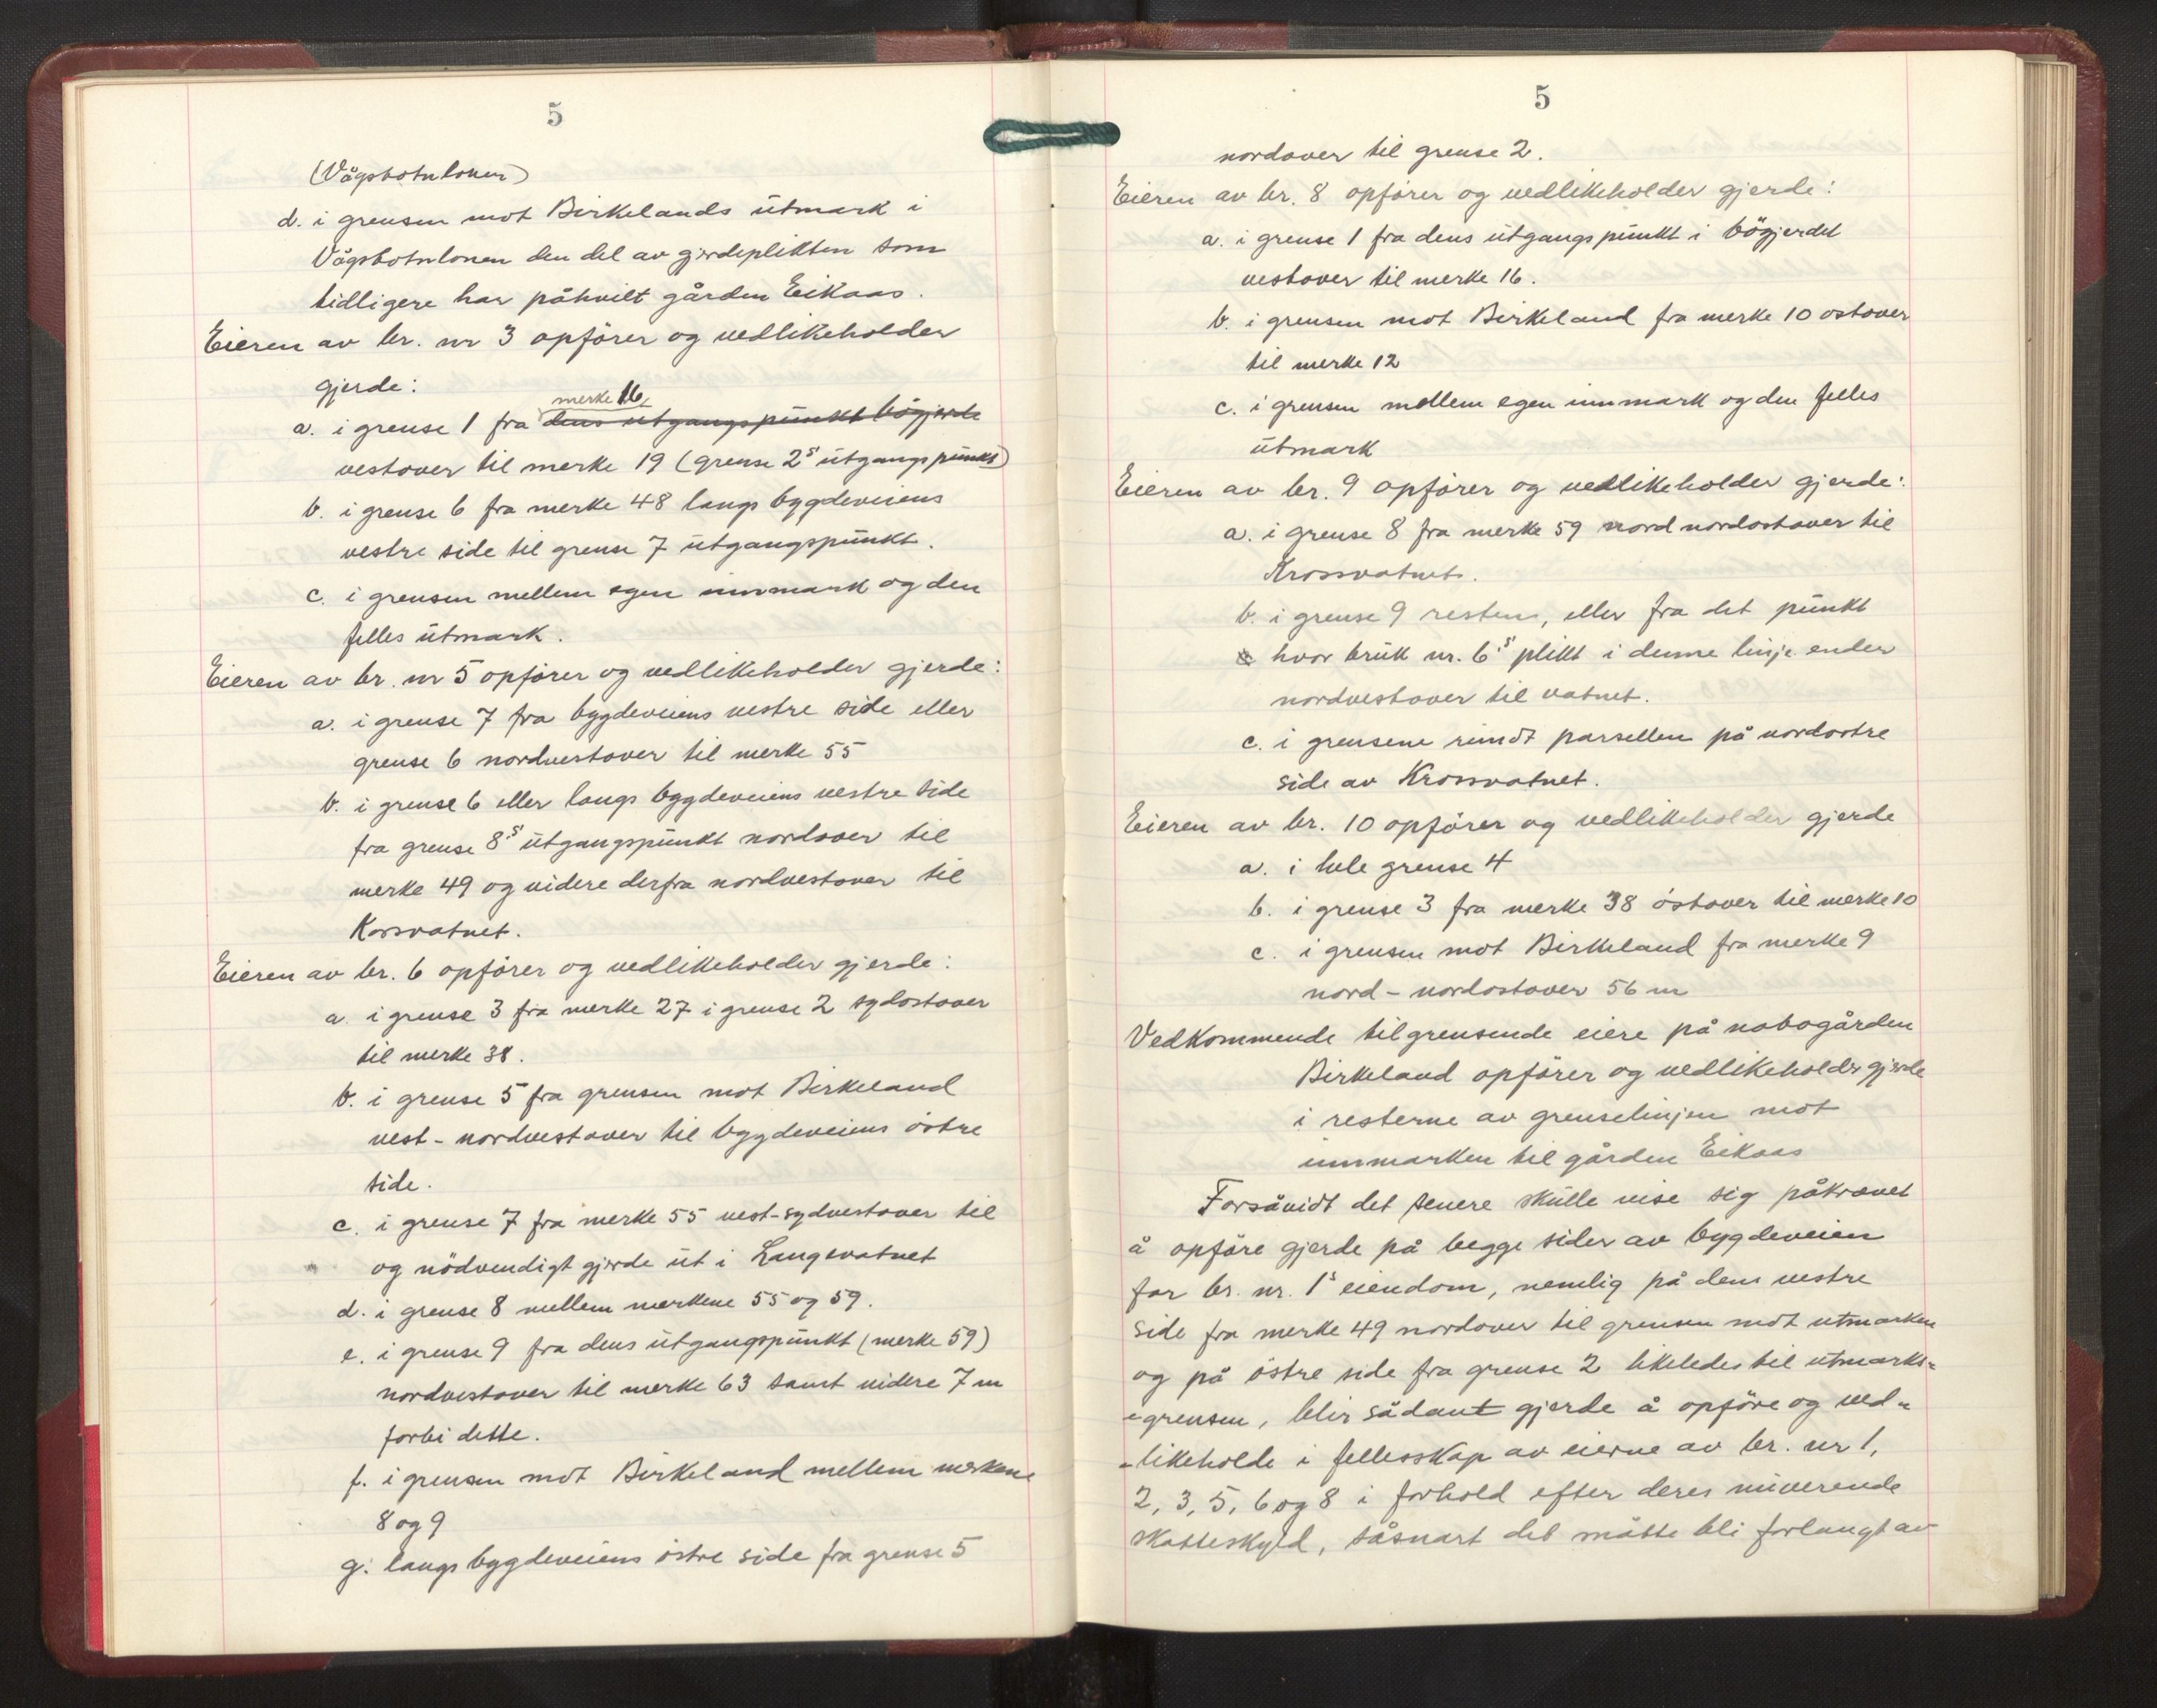 5
(Vågsbotnlonen)
d. i grensen mot Birkelands utmark i
Vågsbotnlonen den del av gjerdeplikten som
tidligere har påhvilt gården Eikaas.
Eieren av br. nr 3 opförer og vedlikeholder
gjerde:
merke 16,
a. i grense 1 fra dens utgangspunkt bögjerde
vestover til merke 19 (grense 2s utgangspunkt)
b. i grense 6 fra merke 48 langs bygdeveiens
vestre side til grense 7 utgangspunkt.
c. i grensen mellem egen innmark og den
felles utmark.
Eieren av br. nr 5 opförer og vedlikeholder gjerde:
a. i grense 7 fra bygdeveiens vestre side eller
grense 6 nordvestover til merke 55
b. i grense 6 eller langs bygdeveiens vestre side
fra grense 8s utgangspunkt nordover til
merke 49 og videre derfra nordvestover til
Korsvatnet.
Eieren av br. 6 opförer og vedlikeholder gjerde:
a. i grense 3 fra merke 27 i grense 2 sydostover
til merke 38.
b. i grense 5 fra grensen mot Birkeland
vest-nordvestover til bygdeveiens östre
side.
c. i grense 7 fra merke 55 vest-sydvestover til
og nödvendigt gjerde ut i Langevatnet
d. i grense 8 mellem merkene 55 og 59.
e. i grense 9 fra dens utgangspunkt (merke 59)
nordvestover til merke 63 samt videre 7 m
forbi dette.
f. i grensen mot Birkeland mellem merkene
8 og 9
g. langs bygdeveiens östre side fra grense 5
5
nordover til grense 2.
Eieren av br. 8 opförer og vedlikeholder gjerde:
a. i grense 1 fra dens utgangspunkt i bögjerdet
vestover til merke 16.
b. i grensen mot Birkeland fra merke 10 ostover
til merke 12
c. i grensen mellem egen innmark og den felles
utmark
Eieren av br. 9 opförer og vedlikeholder gjerde:
a. i grense 8 fra merke 59 nord nordostover til
Krossvatnet.
b. i grense 9 resten, eller fra det punkt
hvor bruk nr. 6s plikt i denne linje ender
nordvestover til vatnet.
c. i grensene rundt parsellen på nordostre
side av Krossvatnet.
Eieren av br. 10 opförer og vedlikeholder gjerde
a. i hele grense 4
b. i grense 3 fra merke 38 östover til merke 10
c. i grensen mot Birkeland fra merke 9
nord - nordostover 56 m
Vedkommende tilgrensende eiere på nabogården
Birkeland opförer og vedlikeholdr gjerde
i resterne av grenselinjen mot
innmarken til gården Eikaas
Forsåvidt det senere skulle vise sig påkrævet
å opföre gjerde på begge sider av bygdeveien
for br. nr. 1s eiendom, nemlig på dens vestre
side fra merke 49 nordover til grensen mot utmarken
og på östre side fra grense 2 likeledes til utmarks-
-grensen, blir sådant gjerde å opföre og ved-
-likeholde i fellesskap av eierne av br. nr 1,
2, 3, 5, 6 og 8 i forhold efter deres nuverende
skatteskyld, såsnart det måtte bli forlangt av